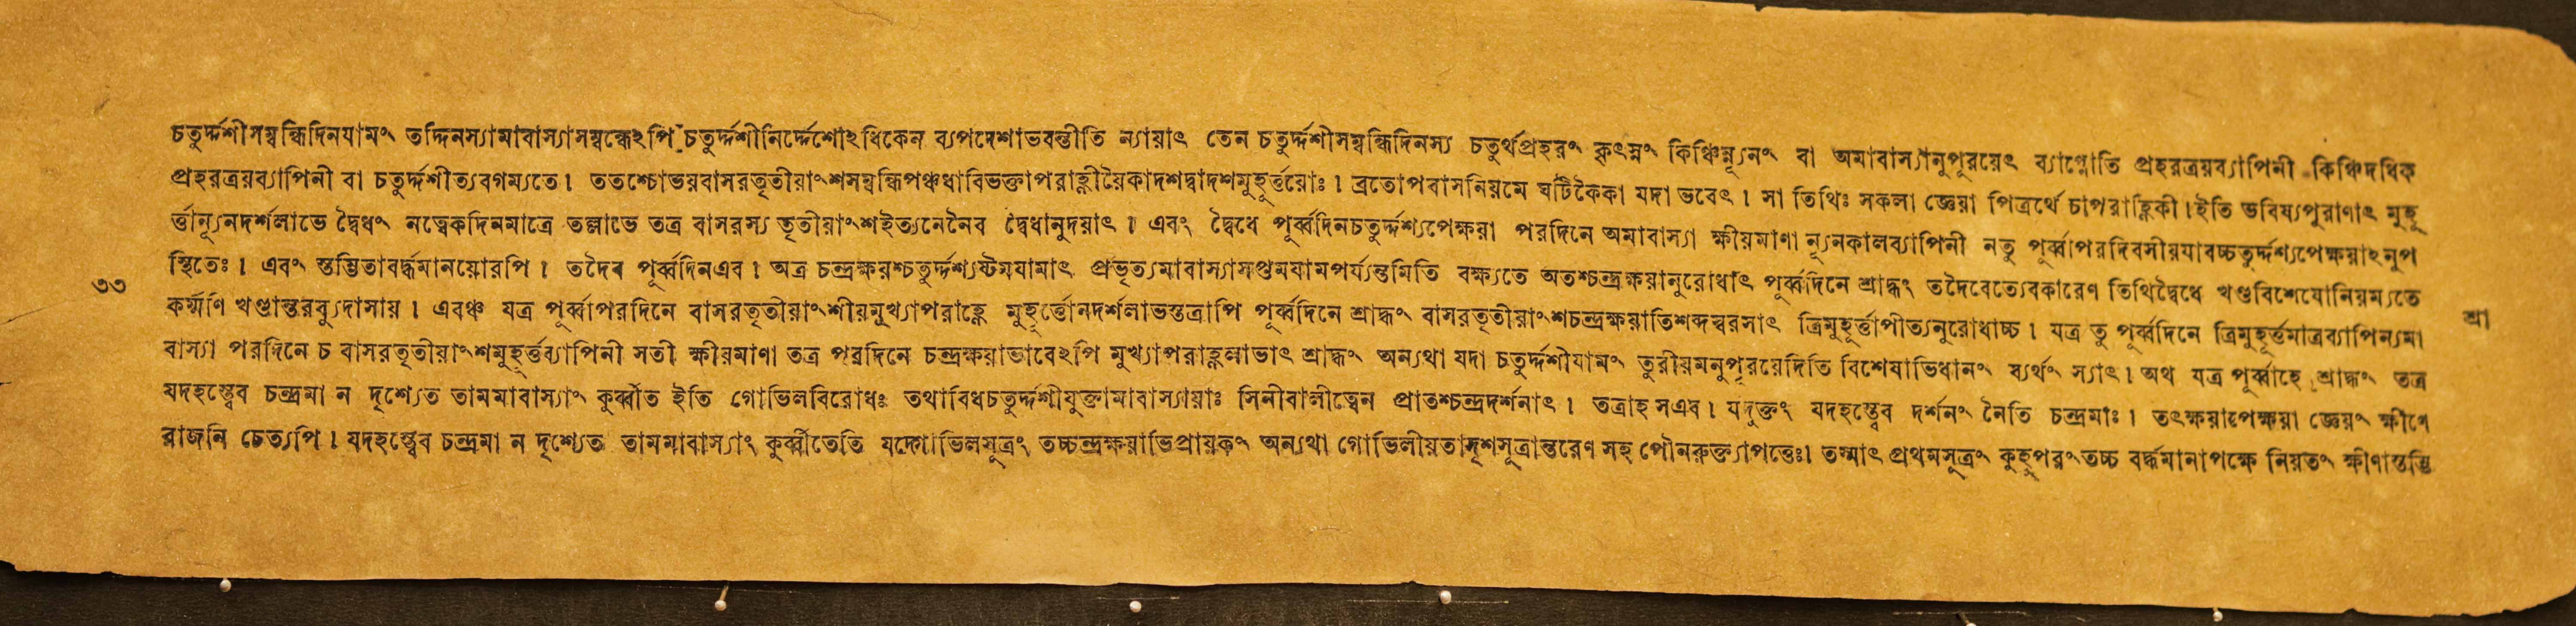 চতুর্দ্দশীসম্বন্ধিদিনযামং তদ্দিনস্যামাবাস্যাসম্বন্ধেঽপি চতুর্দ্দশীনির্দ্দেশোঽধিকেন ব্যপদেশাভবন্তীতি ন্যায়াৎ তেন চতুর্দ্দশীসম্বন্ধিদিনস্য চতুর্থপ্রহরং কৃৎস্নং কিঞ্চিন্ন্যূনং বা অমাবাস্যানুপূরয়েৎ ব্যাপ্নোতি প্রহরত্রয়ব্যাপিনী কিঞ্চিদধিক
প্রহরত্রয়ব্যাপিনী বা চতুর্দ্দশীত্যবগম্যতে। ততশ্চোভয়বাসরতৃতীয়াংশসম্বন্ধিপঞ্চধাবিভক্তাপরাহ্ণীয়ৈকাদশদ্বাদশমুহূর্ত্তয়োঃ। ব্রতোপবাসনিয়মে ঘটিকৈকা যদা ভবেৎ। সা তিথিঃ সকলা জ্ঞেয়া পিত্রর্থে চাপরাহ্ণিকী।ইতি ভবিষ্যপুরাণাৎ মুহূ
র্ত্তান্যূনদর্শলাভে দ্বৈধং নত্বেকদিনমাত্রে তল্লাভে তত্র বাসরস্য তৃতীয়াংশইত্যনেনৈব দ্বৈধানুদয়াৎ। এবং দ্বৈধে পূর্ব্বদিনচতুর্দ্দশ্যপেক্ষয়া পরদিনে অমাবাস্যা ক্ষীয়মাণা ন্যূনকালব্যাপিনী নতু পূর্ব্বাপরদিবসীয়যাবচ্চতুর্দ্দশ্যপেক্ষয়াঽনুপ
স্থিতেঃ। এবং স্তম্ভিতাবর্দ্ধমানয়োরপি। তদৈব পূর্ব্বদিনএব। অত্র চন্দ্রক্ষয়শ্চতুর্দ্দশ্যষ্টমযামাৎ প্রভৃত্যমাবাস্যাসপ্তমযামপর্য্যন্তমিতি বক্ষ্যতে অতশ্চন্দ্রক্ষয়ানুরোধাৎ পূর্ব্বদিনে শ্রাদ্ধং তদৈবেত্যেবকারেণ তিথিদ্বৈধে খণ্ডবিশেষোনিয়ম্যতে
৩৩
কর্ম্মণি খণ্ডান্তরব্যুদাসায়। এবঞ্চ যত্র পূর্ব্বাপরদিনে বাসরতৃতীয়াংশীয়মুখ্যাপরাহ্ণে মুহূর্ত্তোনদর্শলাভস্তত্রাপি পূর্ব্বদিনে শ্রাদ্ধং বাসরতৃতীয়াংশচন্দ্রক্ষয়াতিশব্দস্বরসাৎ ত্রিমুহূর্ত্তাপীত্যনুরোধাচ্চ। যত্র তু পূর্ব্বদিনে ত্রিমুহূর্ত্তমাত্রব্যাপিন্যমা
শ্রা
বাস্যা পরদিনে চ বাসরতৃতীয়াংশমুহূর্ত্তব্যাপিনী সতী ক্ষীয়মাণা তত্র পরদিনে চন্দ্রক্ষয়াভাবেঽপি মুখ্যাপরাহ্ণলাভাৎ শ্রাদ্ধং অন্যথা যদা চতুর্দ্দশীযামং তুরীয়মনুপূরয়েদিতি বিশেষাভিধানং ব্যর্থং স্যাৎ। অথ যত্র পূর্ব্বাহে শ্রাদ্ধং তত্র
যদহস্ত্বেব চন্দ্রমা ন দৃশ্যেত তামমাবাস্যাং কুর্ব্বীত ইতি গোভিলবিরোধঃ তথাবিধচতুর্দ্দশীযুক্তামাবাস্যায়াঃ সিনীবালীত্বেন প্রাতশ্চন্দ্রদর্শনাৎ। তত্রাহ সএব। যদুক্তং যদহস্ত্বেব দর্শনং নৈতি চন্দ্রমাঃ। তৎক্ষয়াপেক্ষয়া জ্ঞেয়ং ক্ষীণে
রাজনি চেত্যপি। যদহস্ত্বেব চন্দ্রমা ন দৃশ্যেত তামমাবাস্যাং কুর্ব্বীতেতি যদ্গোভিলসূত্রং তচ্চন্দ্রক্ষয়াভিপ্রায়কং অন্যথা গোভিলীয়তাদৃশসূত্রান্তরেণ সহ পৌনরুক্ত্যাপত্তেঃ। তস্মাৎ প্রথমসূত্রং কুহূপরং তচ্চ বর্দ্ধমানাপক্ষে নিয়তং ক্ষীণাস্তম্ভি